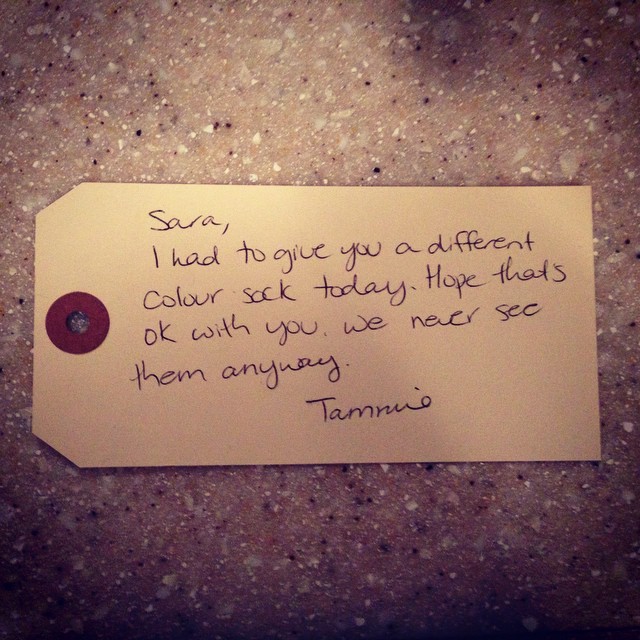 Sara,
I had to give you a different
colour sock today. Hope that's
ok with you. We never see
them anyway.
Tammie